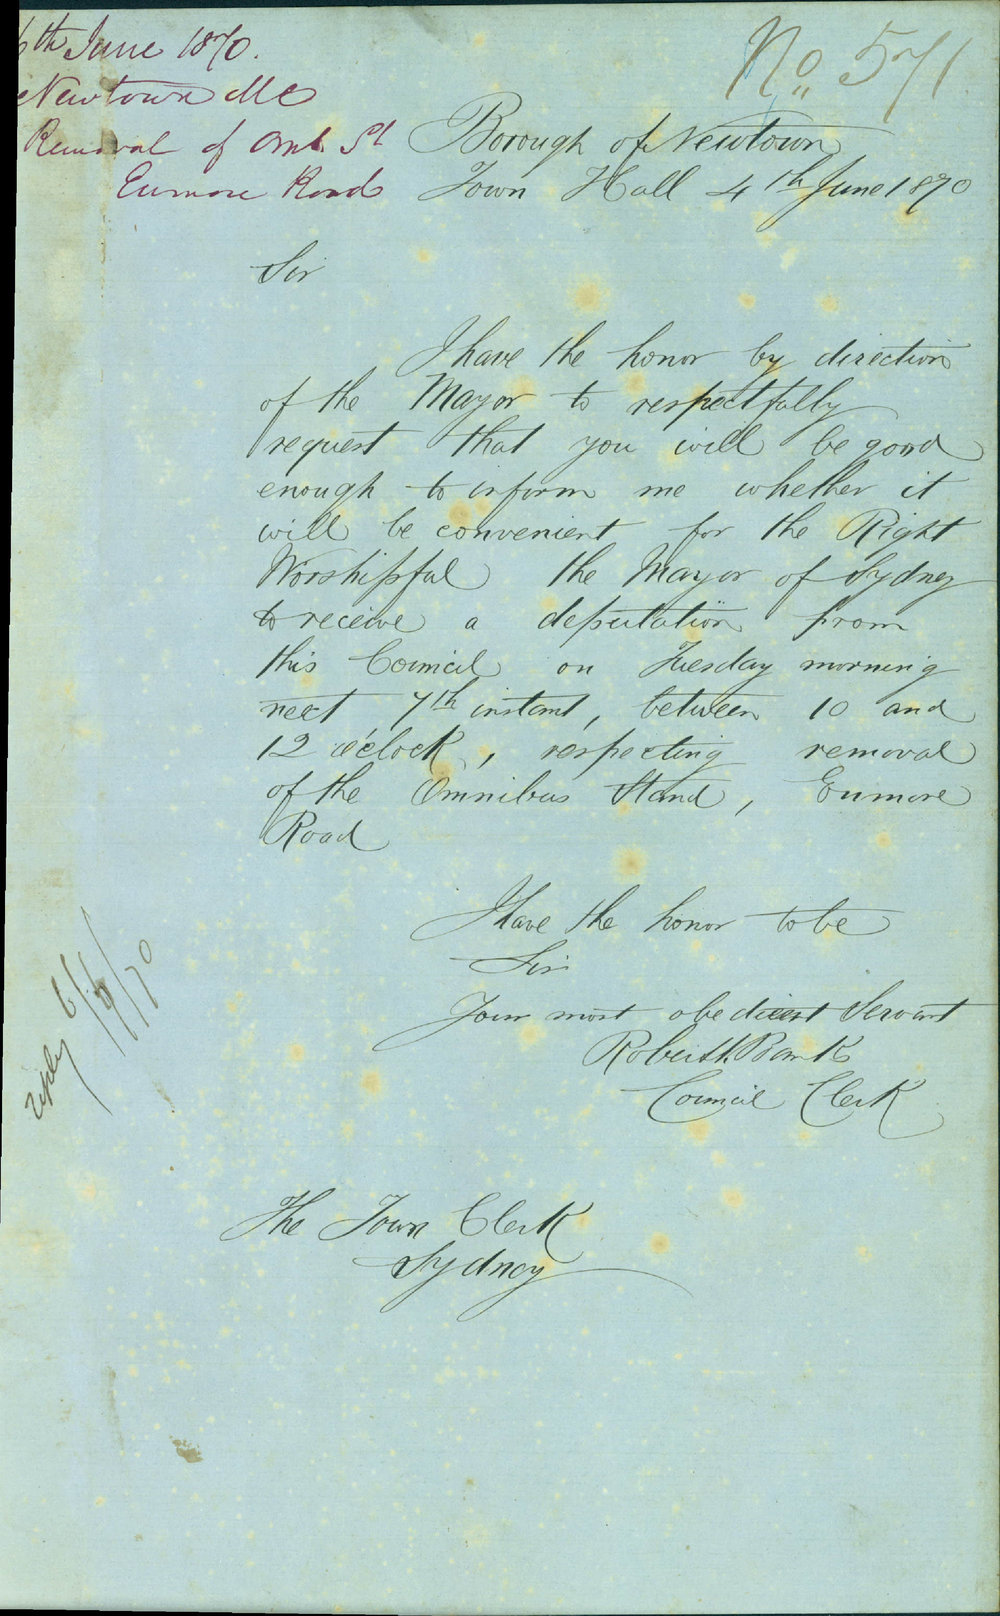 6th June 1870.
Newtown MC
Removal of Omb St
Enmore Road
No. 571
Borough of Newtown
Town Hall 4th June 1870
Sir
I have the honor by direction
of the Mayor to respectfully
request that you will be good
enough to inform me whether it
will be convenient for the Right
Worshipful the Mayor of Sydney
to receive a deputation from
this Council on Tuesday morning
next 7th instant, between 10 and
12 o'clock, respecting removal
of the Omnibus Stand, Enmore
Road
I have the honor to be
Sir
Your most obedient Servant
Council Clerk
reply 6/6/70
The Town Clerk
Sydney